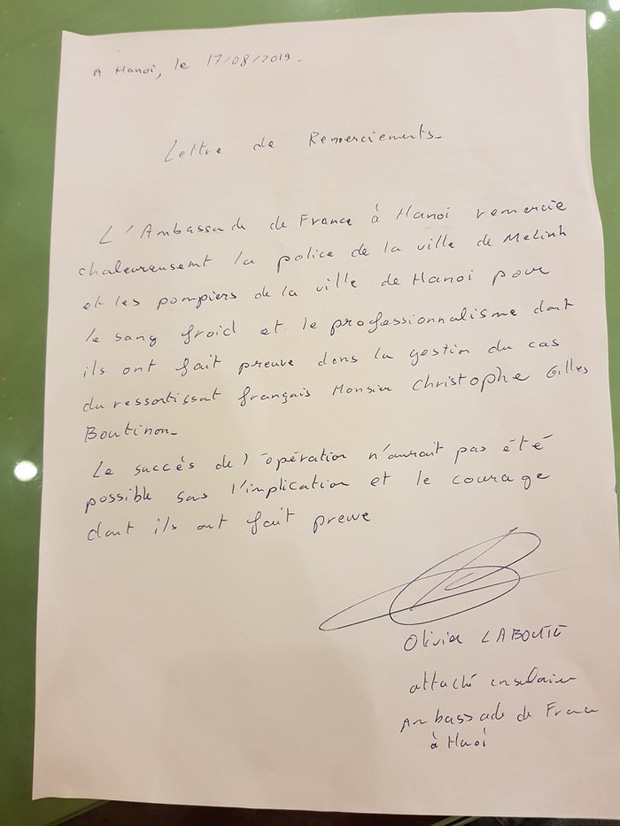 A Hanoi, le 17/08/2019.
Lettre de Remerciements.
L'Ambassade de France à Hanoi remercie
chaleureusement la police de la ville de Melinh
et les pompiers de la ville de Hanoi pour
le sang froid et le professionnalisme dont
ils ont fait preuve dans la gestion du cas
du ressortissant français Monsieur Christophe Gilles
Boutinon.
Le succés de l'opération n'aurait pas été
possible sans l'implication et le courage
dont ils ont fait preuve
Olivier
attaché consulaire
Ambassade de France
à Hanoi